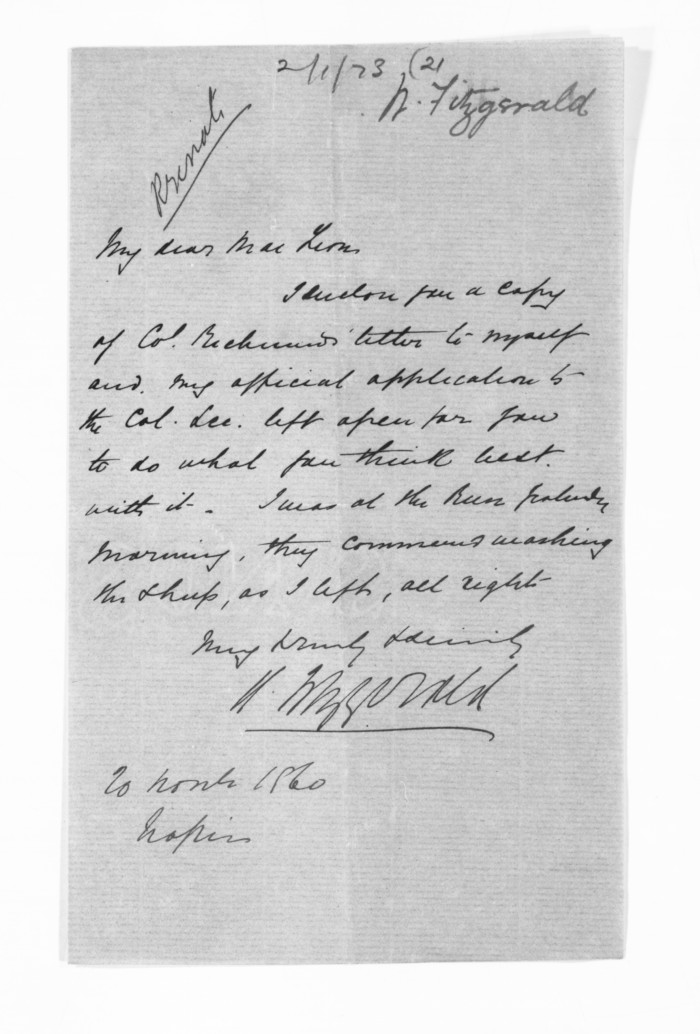 2/1/73 (21
N. Fitzgerald
Private
My dear Mac Lean
I enclose you a copy
of Col. Richmond's letter to myself
and my official application to
the Col. Sec. left open for you
to do what you think best
with it - I was at the Run yesterday
morning, they commenced washing
the sheep, as I left, all right
Very truly & sincerely
N. Fitzgerald
20 Novbr 1860
Napier